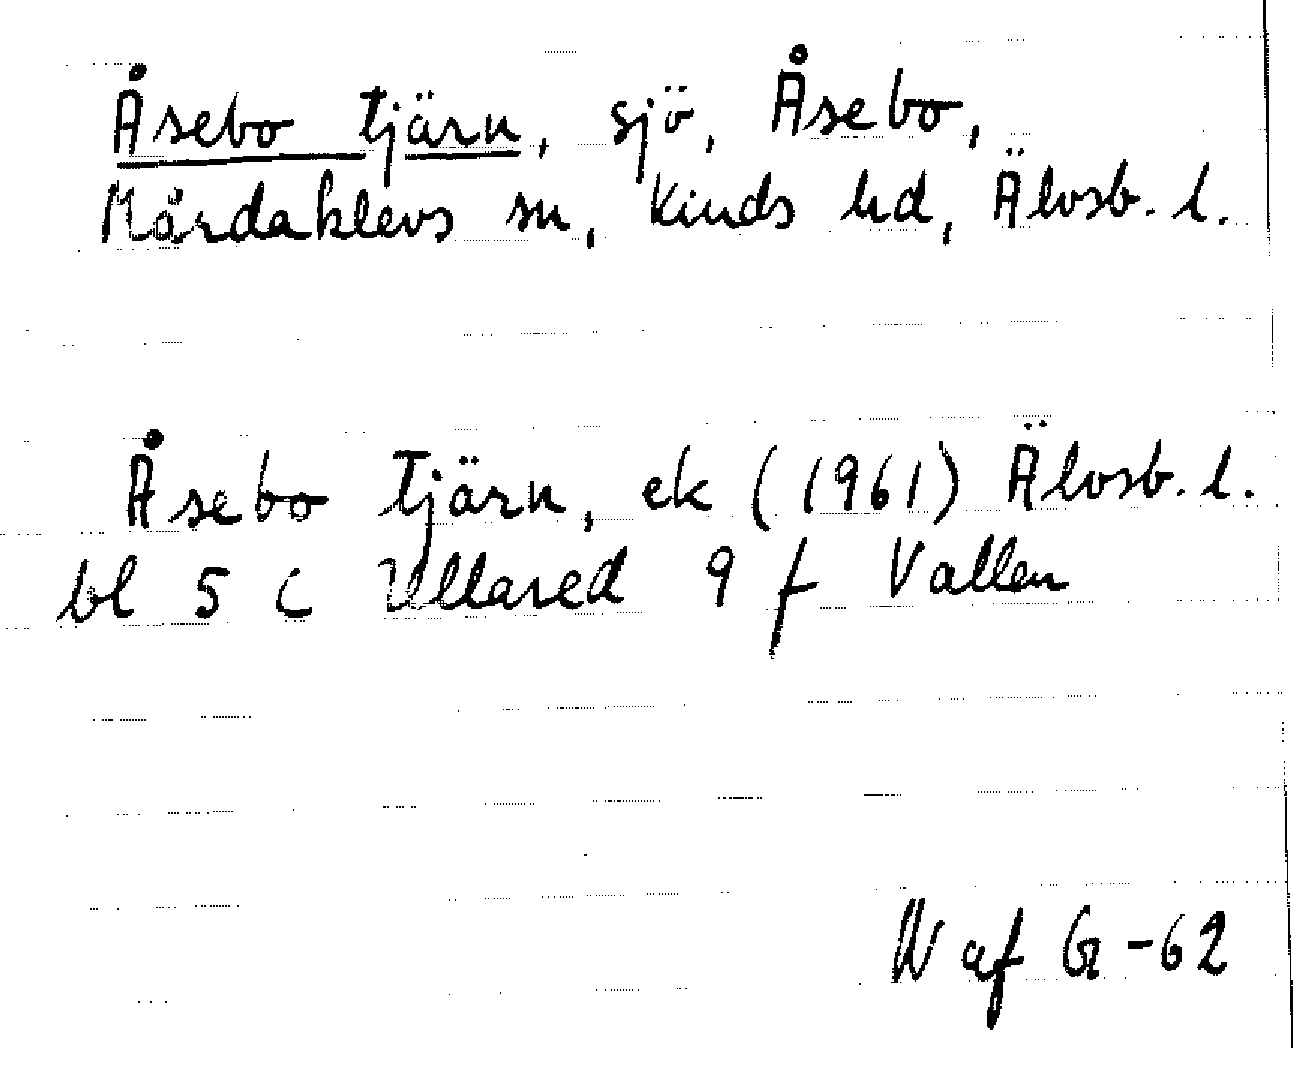 Åsebo tjärn, sjö, Åsebo,
Mårdaklevs sn, Kinds hd, Älvsb. l.
Åsebo Tjärn, ek (1961) Älvsb. l.
bl 5 C Ullared 9 f Vallen
W af G -62